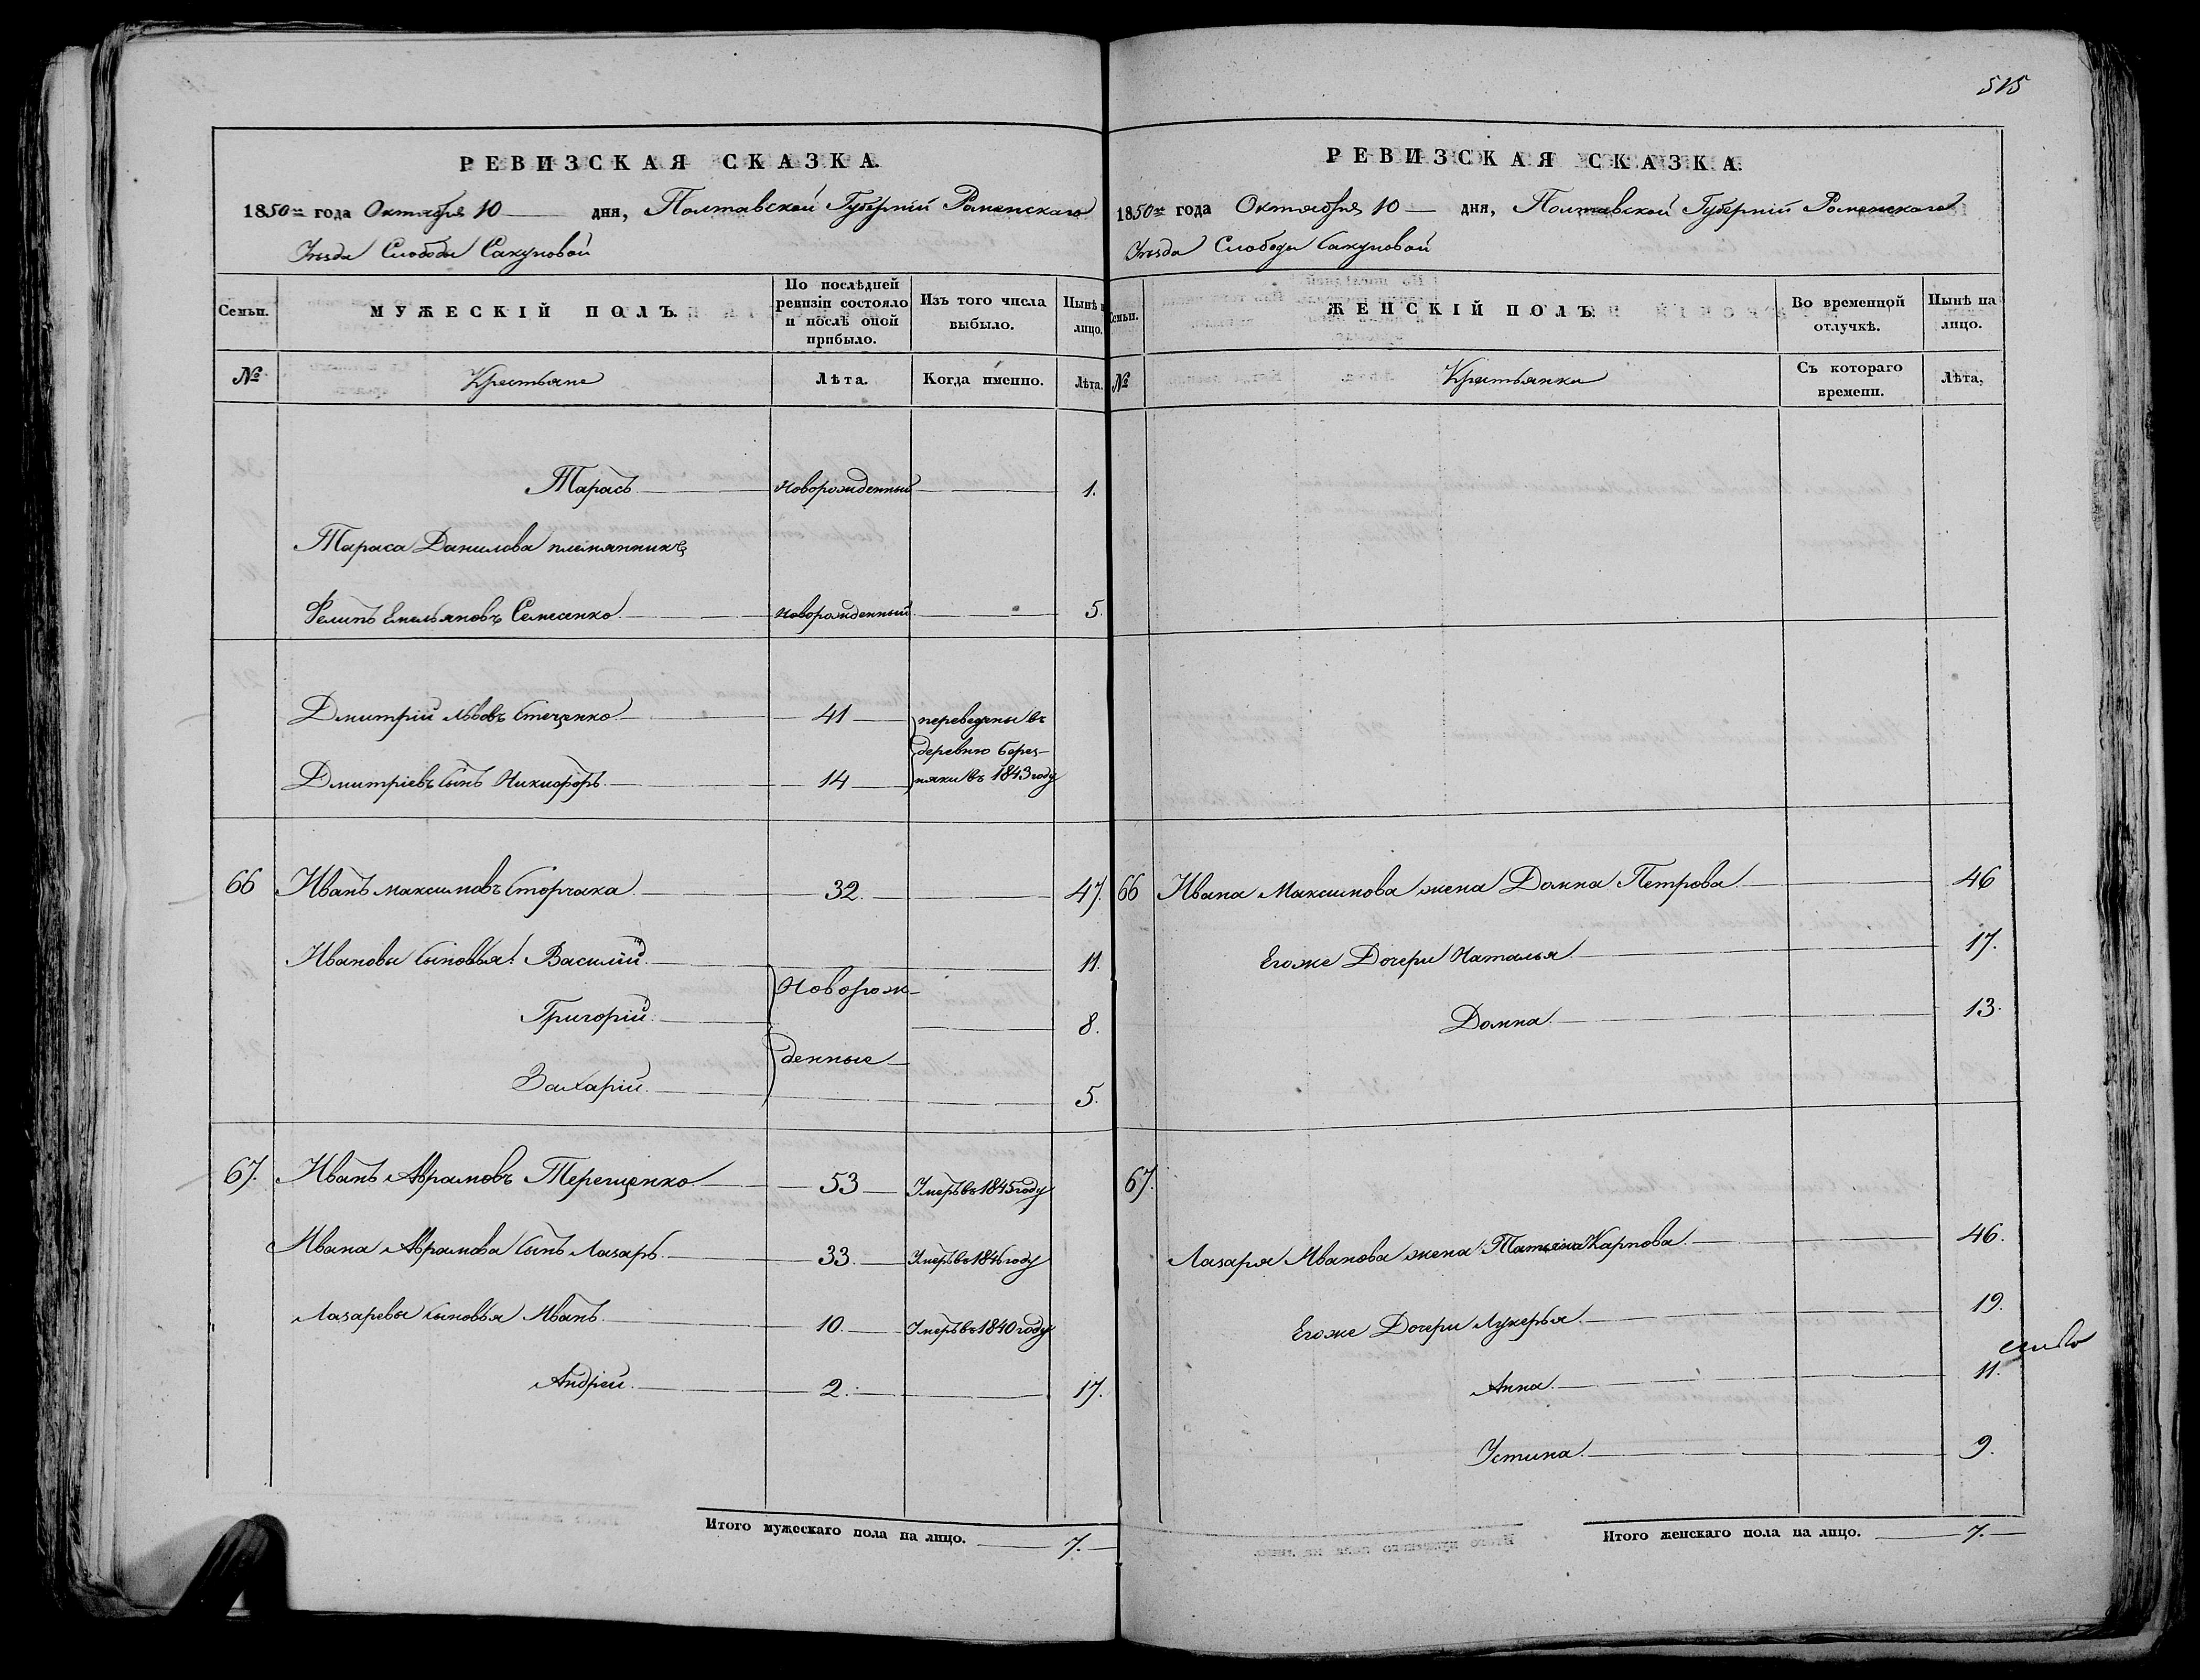 РЕВИЗСКАЯ СКАЗКА.
1850го года Октября 10 дня, Полтавской Губерніи Роменскаго
Уѣзда Слободы Сакуновой
Семьи. МУЖЕСКІЙ ПОЛЪ. По послѣдней ревизіи состояло и послѣ оной прибыло. Изъ того числа выбыло. Нынѣ на лицо.
№ Крестьяне Лѣта. Когда именно. Лѣта.
Тарасъ Новорожденный 1.
Тараса Данилова племянникъ
Филипъ Емельяновъ Семесенко Новорожденный 5.
Дмитрій Львовъ Стеценко 41 переведены въ
деревню Берез-
Дмитріевъ Сынъ Никифоръ 14 няки въ 1843 году
66 Иванъ Максимовъ Сторчака 32. 47.
Ивановы Сыновья: Василій 11.
Новорож-
Григорій 8.
денные
Захарій 5.
67. Иванъ Аврамовъ Терещенко 53 Умеръ въ 1845 году
Ивана Аврамова Сынъ Лазарь 33. Умеръ въ 1846 году
Лазаревы Сыновья Иванъ 10. Умеръ въ 1840 году
Андрей 2. 17.
Итого мужескаго пола на лицо. 7.
515
РЕВИЗСКАЯ СКАЗКА.
1850го года Октября 10 дня, Полтавской Губерніи Роменскаго
Уѣзда Слободы Сакуновой
Семьи. ЖЕНСКІЙ ПОЛЪ. Во временной отлучкѣ. Нынѣ на лицо.
№ Крестьянки Съ котораго времени. Лѣта.
66 Ивана Максимова жена Домна Петрова 46
Егоже Дочери Наталья 17.
Домна 13.
67.
Лазаря Иванова жена Татьяна Карпова 46.
Егоже Дочери Лукерья 19.
Анна 11.
Устина 9.
Итого женскаго пола на лицо. 7.